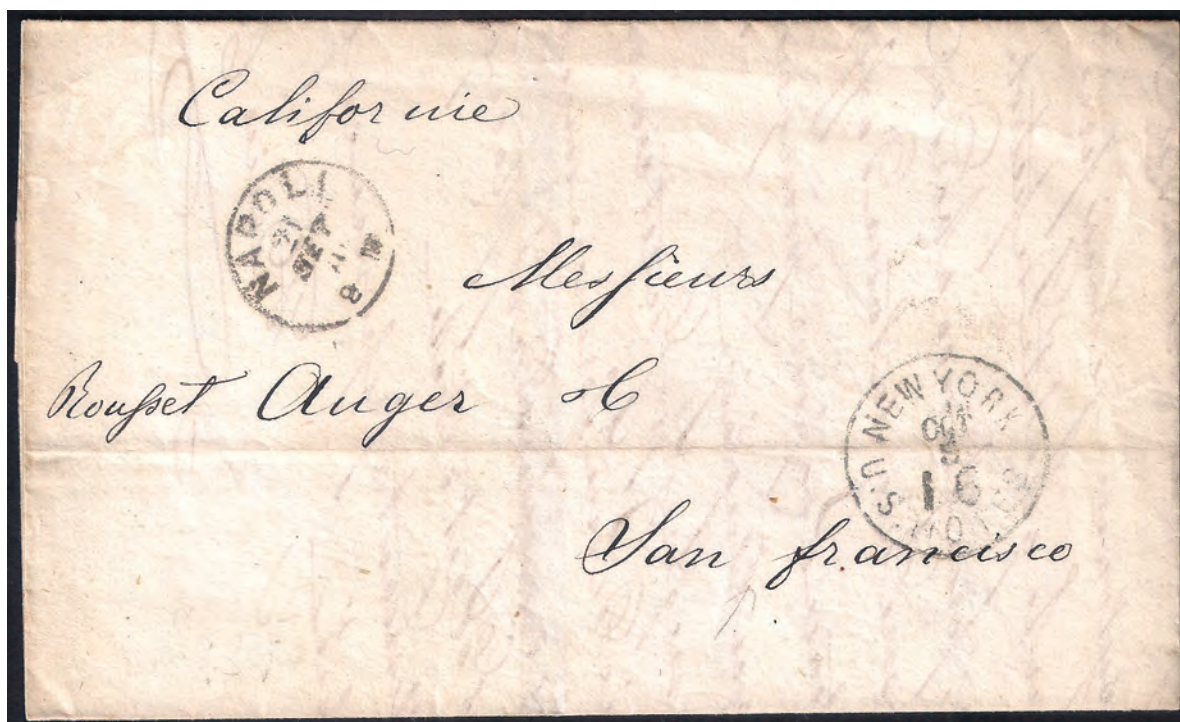 Californie
NAPOLI
SET
8 M
Messieurs
Rousset Auger & C
NEW YORK
OCT
16
U.S. NOTES
San francisco